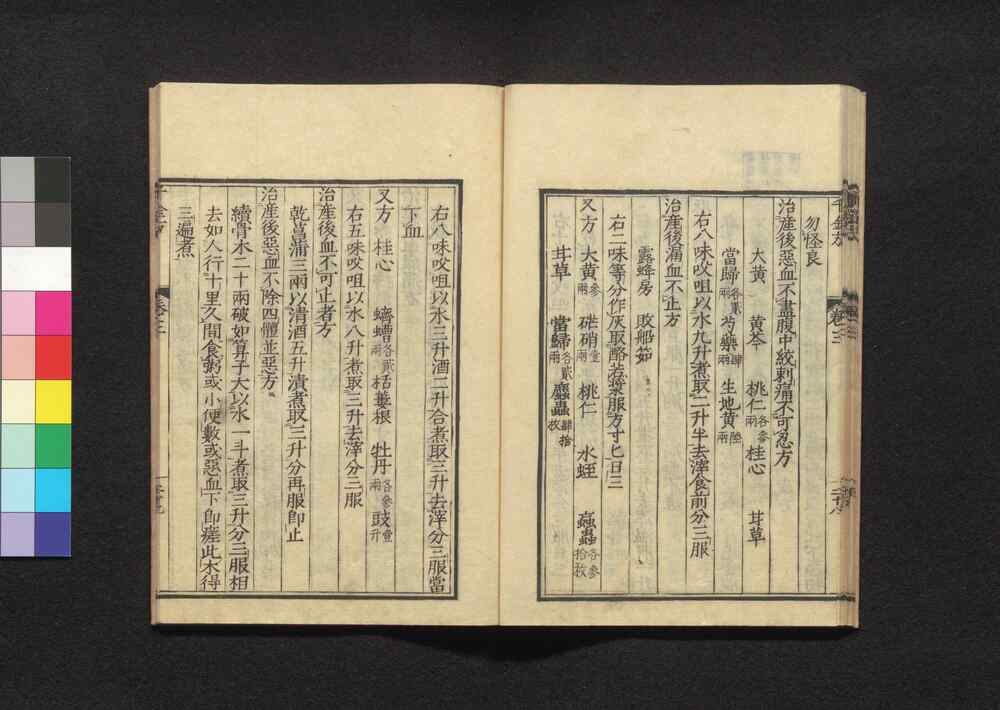 勿怪良
治產後惡血不盡腹中絞刺痛不可忍方
大黃 黃芩 桃仁各參兩 桂心 甘草
當歸各貳兩 芍藥肆兩 生地黃陸兩
右八味㕮咀以水九升煮取二升半去滓食前分三服
治產後漏血不止方
露蜂房 敗船茹
右二味等分作灰取酪若漿服方寸匕日三
又方 大黃參兩 硭硝壹兩 桃仁 水蛭 蝱蟲各參拾枚
甘草 當歸各貳兩 䗪蟲肆拾枚
右八味㕮咀以水三升酒二升合煮取三升去滓分三服當
下血
又方 桂心 蠐螬各貳兩 栝蔞根 牡丹各參兩 豉壹升
右五味㕮咀以水八升煮取三升去滓分三服
治產後血不可止者方
乾菖蒲三兩以清酒五升漬煮取三升分再服即止
治產後惡血不除四體並惡方
續骨木二十兩破如筭子大以水一斗煮取三升分三服相
去如人行十里久間食粥或小便數或惡血下即瘥此木得
三遍煮